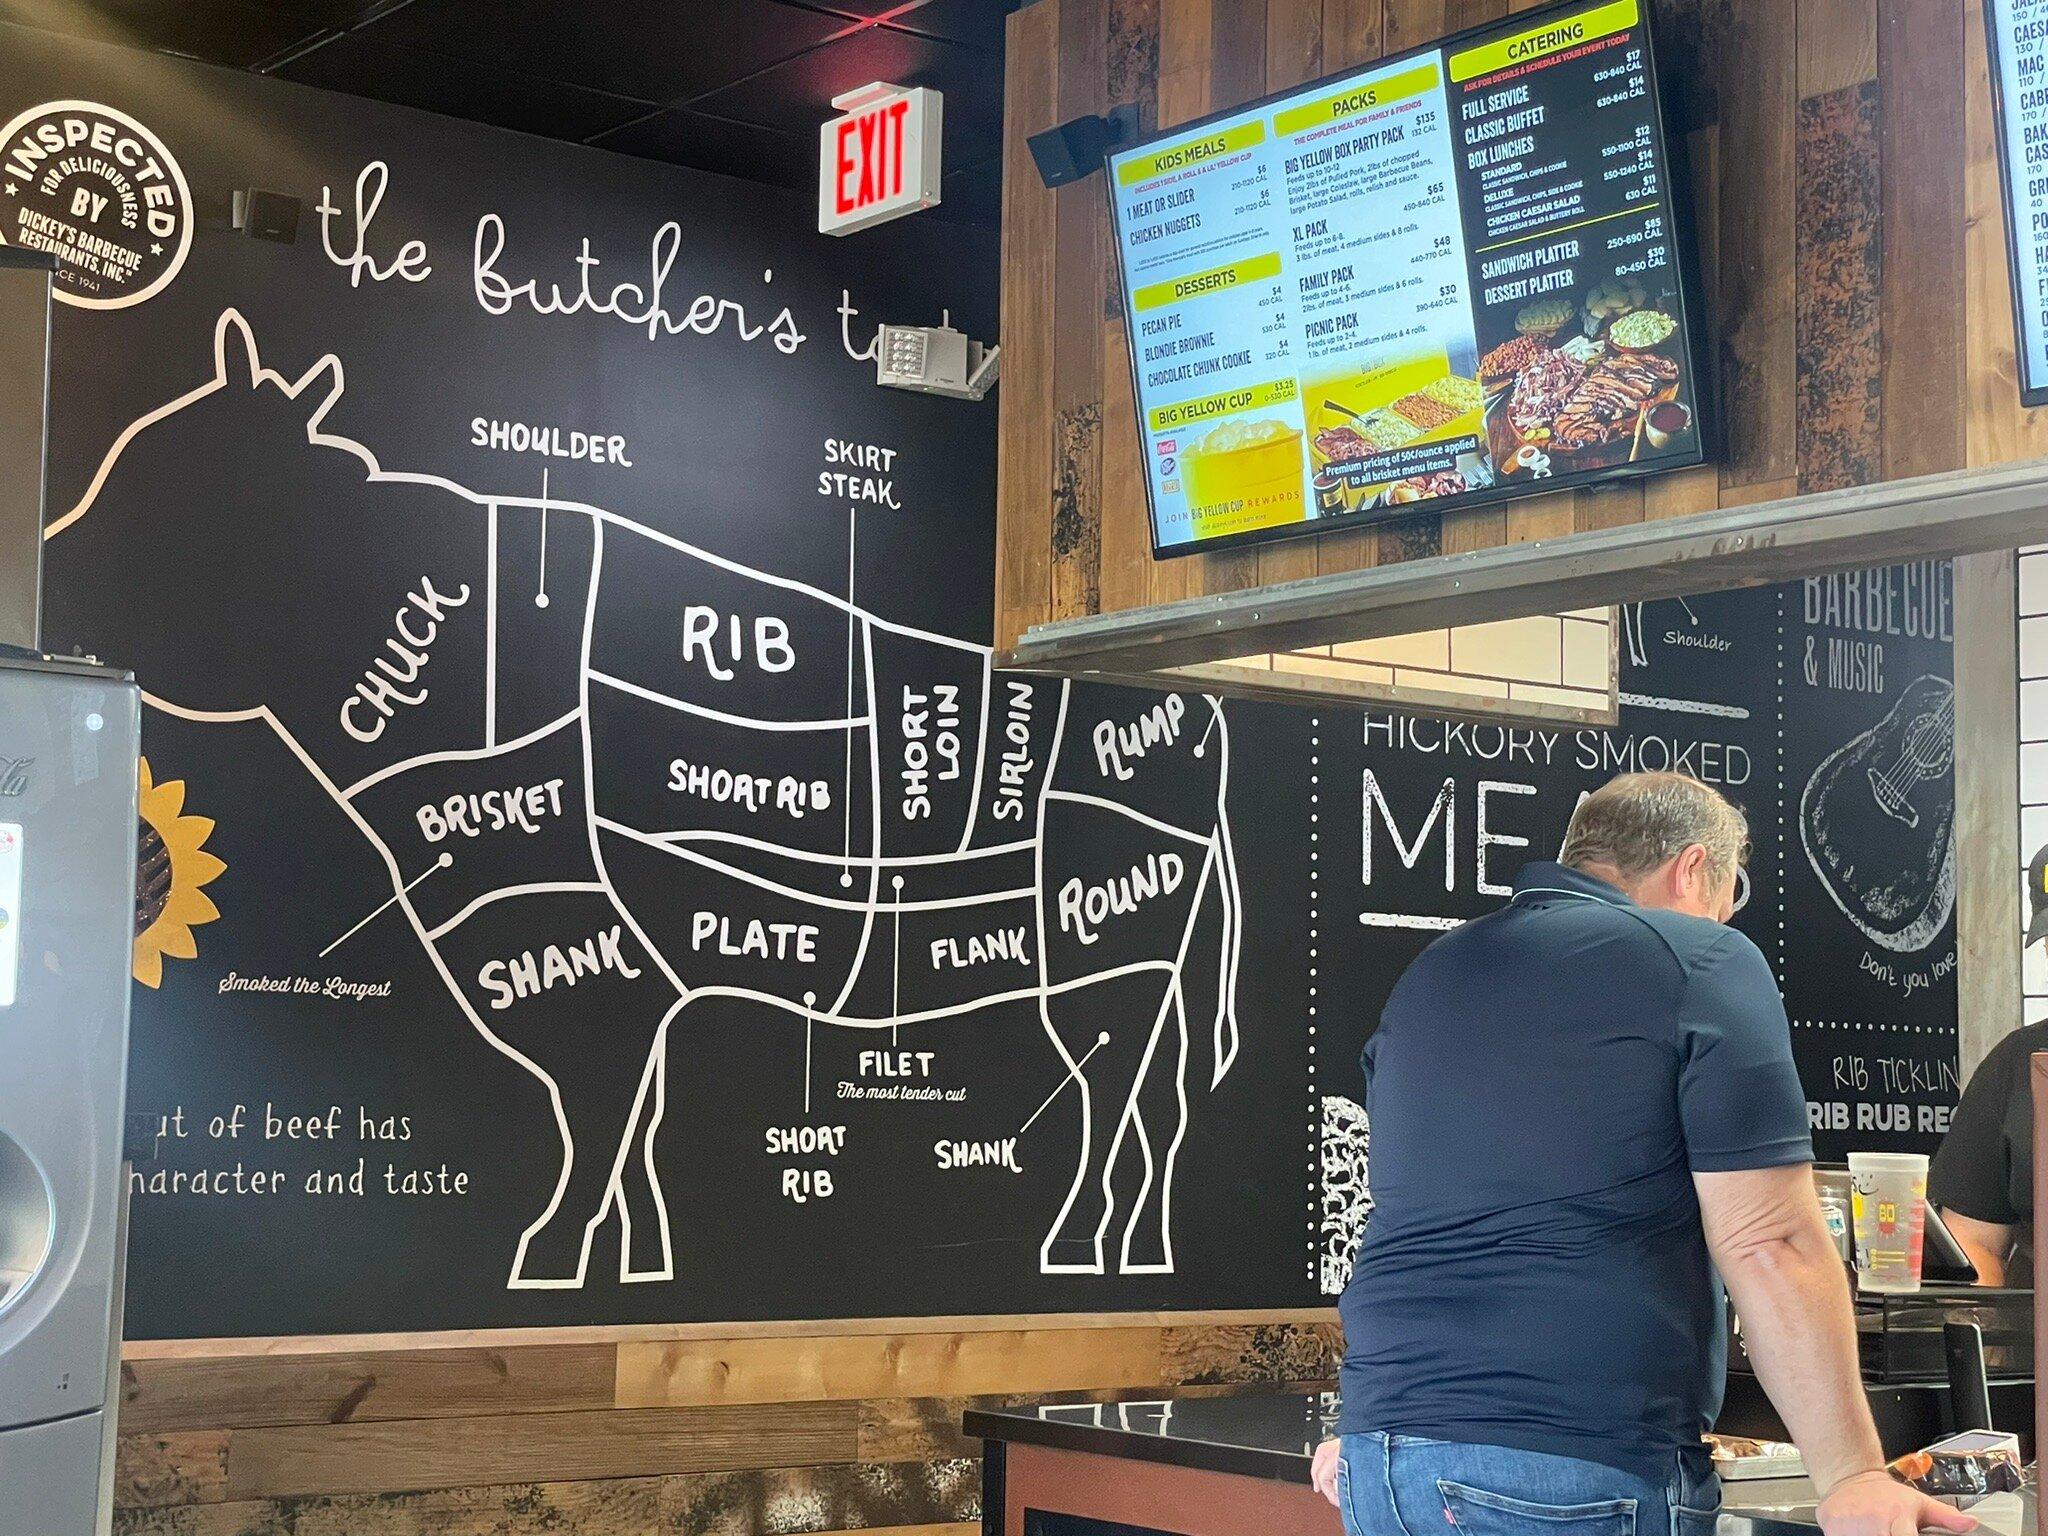 INSPECTED
FOR DELICIOUSNESS
BY
DICKEY'S BARBECUE
RESTAURANTS, INC.
CE 1941
the butcher's
EXIT
SHOULDER
SKIRT
STEAK
CHUCK
RIB
SHORT
LOIN
SIRLOIN
RUMP
SHORT RIB
BRISKET
ROUND
PLATE
FLANK
SHANK
Smoked the Longest
FILET
The most tender cut
SHORT
RIB
SHANK
of beef has
and taste
KIDS MEALS
INCLUDES 1 SIDE, A ROLL & A LIL' YELLOW CUP
$6
1 MEAT OR SLIDER 210-1120 CAL
$6
CHICKEN NUGGETS 210-1120 CAL
DESSERTS
$4
PECAN PIE 450 CAL
$4
BLONDIE BROWNIE 530 CAL
$4
CHOCOLATE CHUNK COOKIE 320 CAL
BIG YELLOW CUP $3.25
0-530 CAL
Coca-Cola
JOIN BIG YELLOW CUP REWARDS
PACKS
THE COMPLETE MEAL FOR FAMILY & FRIENDS
BIG YELLOW BOX PARTY PACK $135
132 CAL
Feeds up to 10-12
Enjoy 2lbs of Pulled Pork, 2lbs of chopped
Brisket, large Coleslaw, large Barbecue Beans,
large Potato Salad, rolls, relish and sauce.
XL PACK $65
450-840 CAL
Feeds up to 6-8.
3 lbs. of meat, 4 medium sides & 8 rolls.
FAMILY PACK $48
440-770 CAL
Feeds up to 4-6.
2lbs. of meat, 3 medium sides & 6 rolls.
PICNIC PACK $30
390-640 CAL
Feeds up to 2-4.
1 lb. of meat, 2 medium sides & 4 rolls.
Premium pricing of 50¢/ounce applied
to all brisket menu items.
CATERING
ASK FOR DETAILS & SCHEDULE YOUR EVENT TODAY
$17
FULL SERVICE 630-840 CAL
$14
CLASSIC BUFFET 630-840 CAL
BOX LUNCHES
$12
STANDARD 550-1100 CAL
CLASSIC SANDWICH, CHIPS & COOKIE
$14
DELUXE 550-1240 CAL
CLASSIC SANDWICH, CHIPS, SIDE & COOKIE
$11
CHICKEN CAESAR SALAD 630 CAL
CHICKEN CAESAR SALAD & BUTTERY ROLL
$85
SANDWICH PLATTER 250-690 CAL
$30
DESSERT PLATTER 80-450 CAL
150 /
CAESA
130 /
MAC
110 /
CAB
170 /
BAK
CAS
170
GR
40
PO
160
Shoulder
HICKORY SMOKED
ME
BARBECUE
& MUSIC
Don't you love
RIB TICKLIN
RIB RUB RE